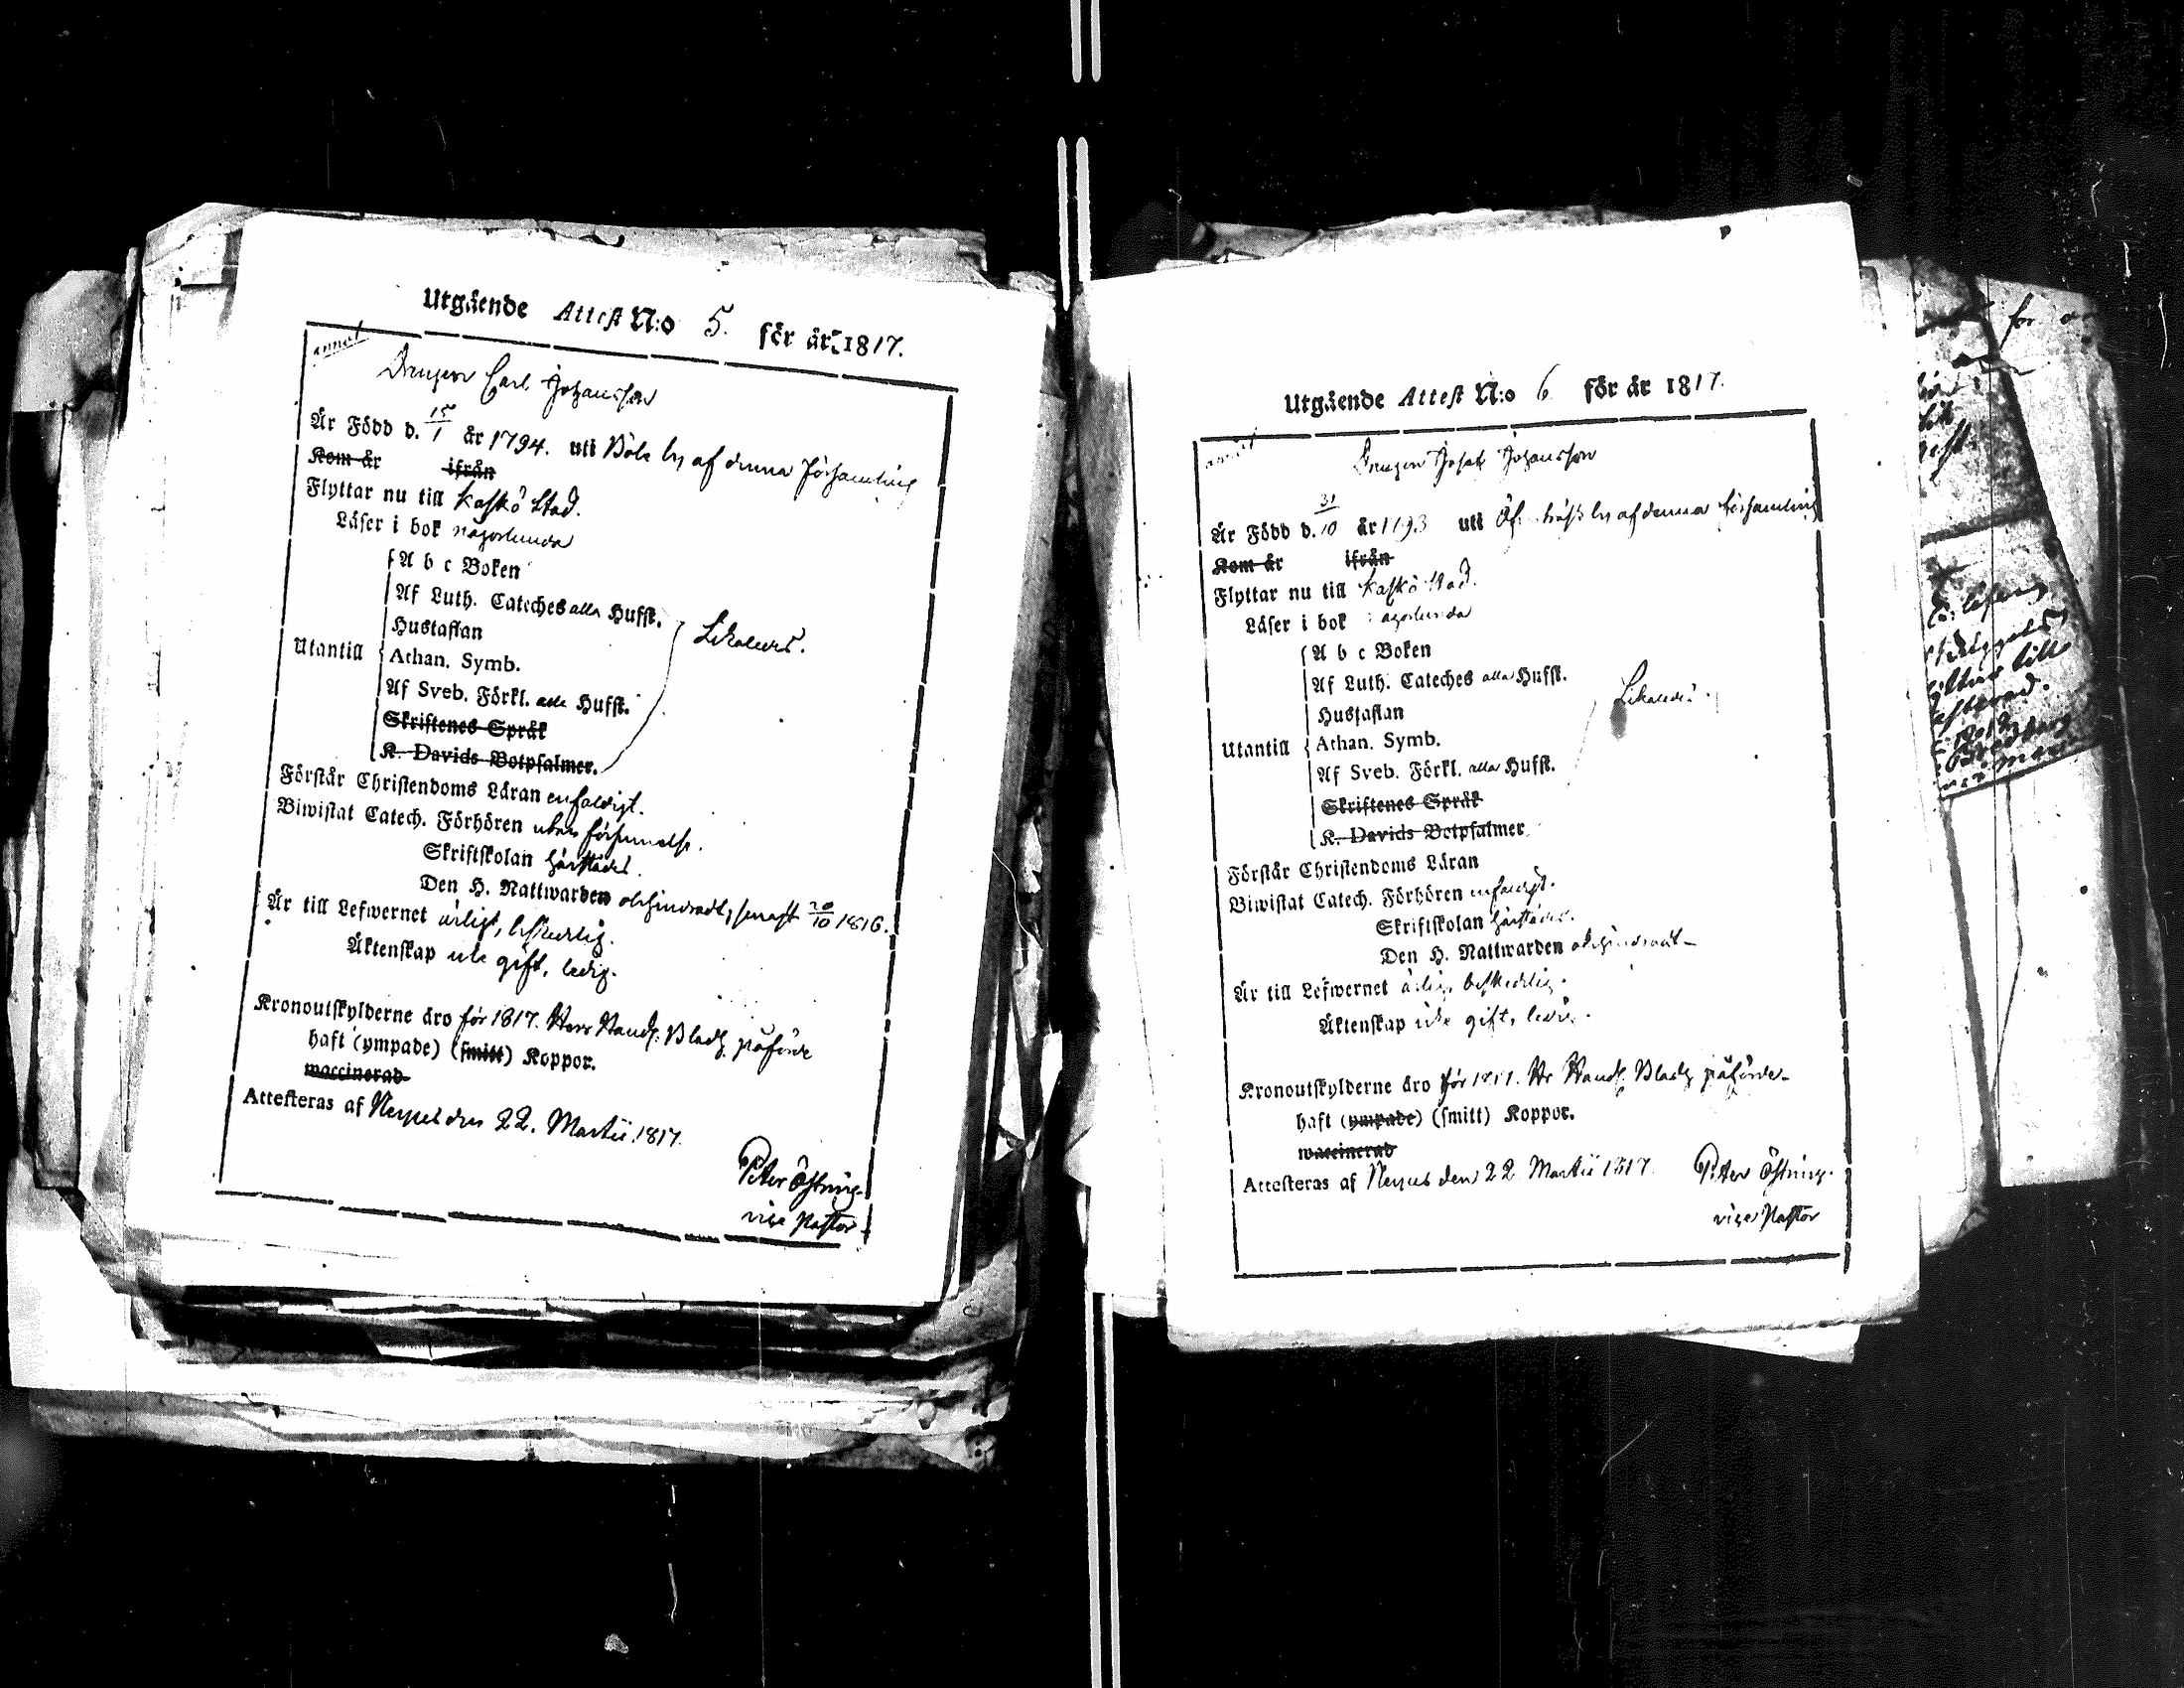 Utgående Attest N:o 5. för år 1817.
Drengen Carl Johansson
Är Född d. 15/1 år 1794. uti Böle by af denna församling
Kom år ifrån
Flyttar nu till Kaskö Stad.
Läser i bok någorlunda
A b c Boken
Af Luth. Cateches alla Hufst.
Likaledes.
Hustaflan
Utantill
Athan. Symb.
Af Sveb. Förkl. alla Hufst.
Skriftenes Språk
K. Davids Botpsalmer.
Förstår Christendoms Läran enfaldigt.
Biwistat Catech. Förhören utan försummelse.
Skriftskolan härstädes.
Den H. Nattwarden obehindradt, senast 20/10 1816.
Är till Lefwernet ärligt, beskedelig.
Äktenskap icke gift, ledig.
Kronoutskylderne äro för 1817. Herr Handl. Bladh påförde
haft (ympade) (smitt) Koppor.
waccinerad
Attesteras af Nerpes den 22. Martii 1817.
Peter Östring.
vice Pastor
Utgående Attest N:o 6 för år 1817.
Drengen Josef Johansson
Är Född d. 31/10 år 1793 uti by af denna församling
Kom år ifrån
Flyttar nu till Kaskö Stad.
Läser i bok någorlunda
A b c Boken
Af Luth. Cateches alla Hufst.
Likaledes.
Hustaflan
Utantill
Athan. Symb.
Af Sveb. Förkl. alla Hufst.
Skriftenes Språk
K. Davids Botpsalmer
Förstår Christendoms Läran
Biwistat Catech. Förhören enfaldigt.
Skriftskolan härstädes.
Den H. Nattwarden obehindradt
Är till Lefwernet ärlig, beskedelig.
Äktenskap icke gift, ledig.
Kronoutskylderne äro för 1817. Hr Handl. Bladh påförde
haft (ympade) (smitt) Koppor.
waccinerad
Attesteras af Nerpes den 22 Martii 1817.
Peter Östring.
vice Pastor